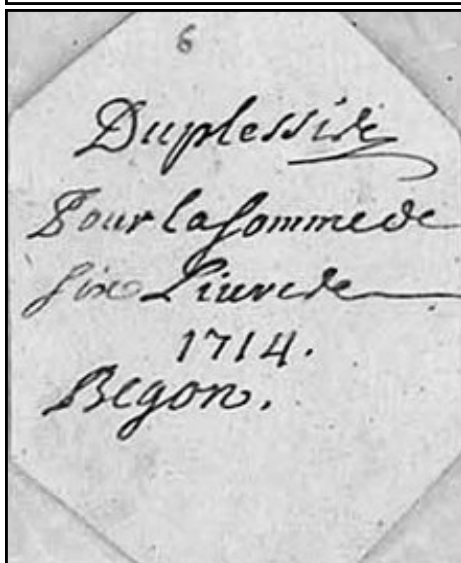 6
Duplessis
Pour la somme de
six Livres
1714.
Begon.